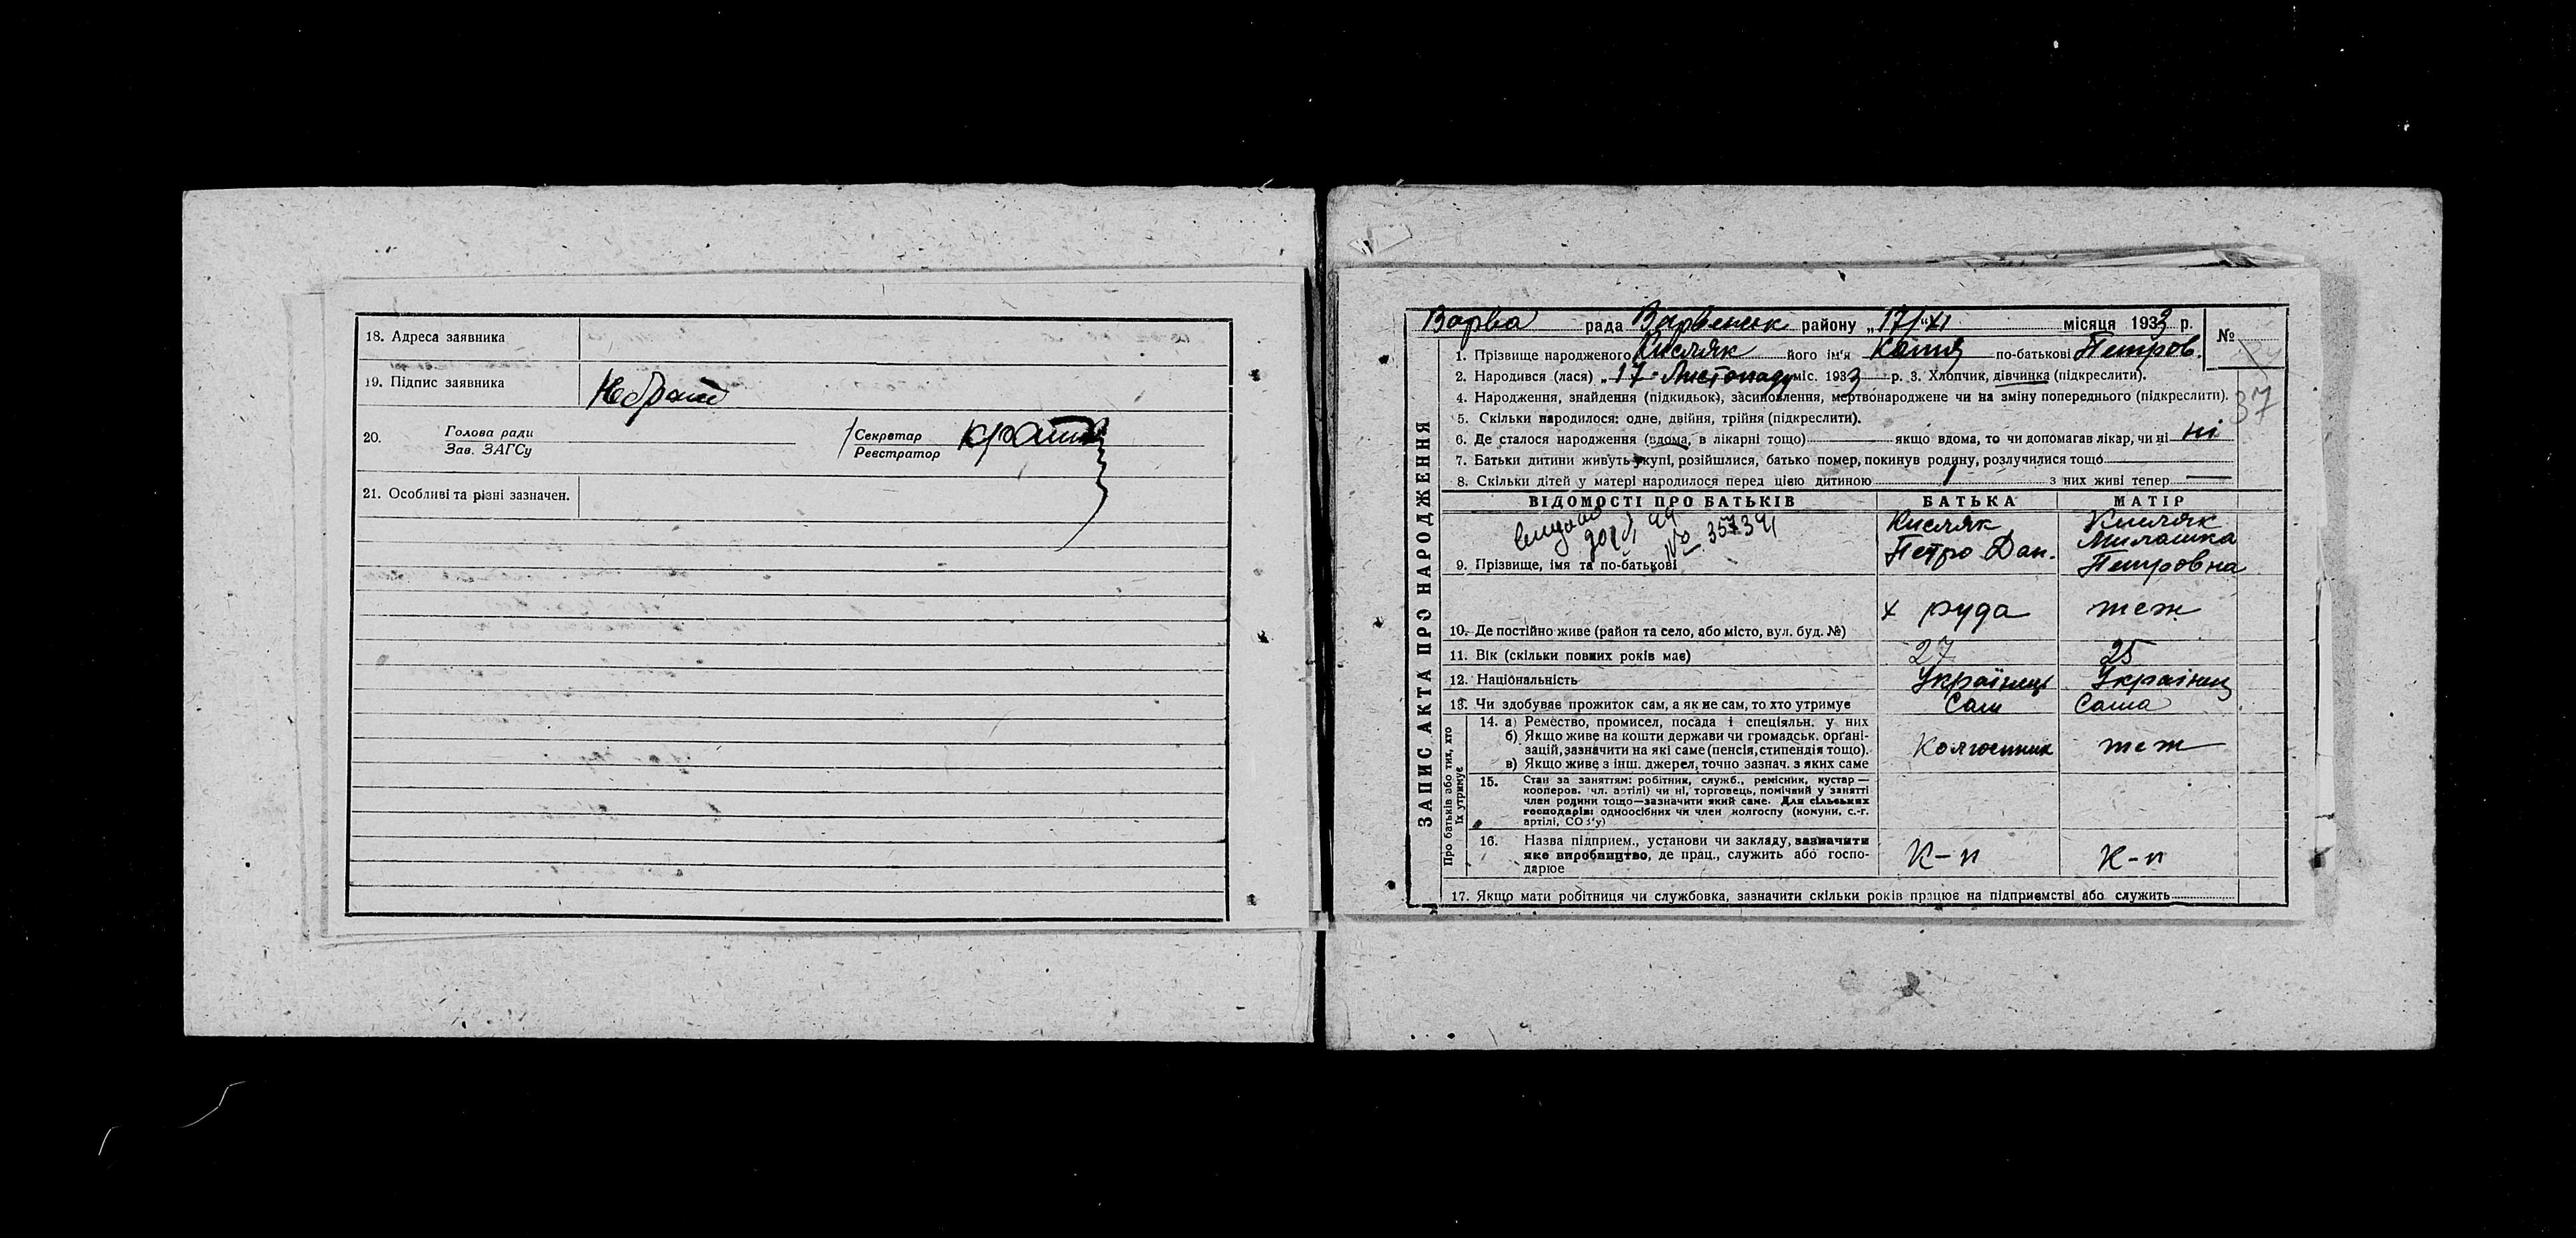 18. Адреса заявника
19. Підпис заявника
20. Голова ради
Зав. ЗАГСу
Секретар
Реєстратор
21. Особливі та різні зазначен.
ЗАПИС АКТА ПРО НАРОДЖЕННЯ
Варва рада Варвенськ району „17/"XI місяця 1933 р. №
37
1. Прізвище народженого Кисляк його ім'я Катя по-батькові Петров.
2. Народився (лася) „17" Листопаду міс. 1933 р. 3. Хлопчик, дівчинка (підкреслити).
4. Народження, знайдення (підкидьок), засиновлення, мертвонароджене чи на зміну попереднього (підкреслити).
5. Скільки народилося: одне, двійня, трійня (підкреслити).
6. Де сталося народження (вдома, в лікарні тощо) якщо вдома, то чи допомагав лікар, чи ні ні
7. Батьки дитини живуть укупі, розійшлися, батько помер, покинув родину, розлучилися тощо
8. Скільки дітей у матері народилося перед цією дитиною 1 з них живі тепер —
ВІДОМОСТІ ПРО БАТЬКІВ БАТЬКА МАТІР
№ 357391
9. Прізвище, імя та по-батькові
Кисляк
Петро Дан.
Кисляк
Милашка
Петровна
10. Де постійно живе (район та село, або місто, вул. буд. №) х руда теж
11. Вік (скільки повних років має) 27 25
12. Національність Українець Українка
13. Чи здобуває прожиток сам, а як не сам, то хто утримує Сам Сама
Про батьків або тих, хто
їх утримує
14. а) Ремество, промисел, посада і спеціяльн. у них
б) Якщо живе на кошти держави чи громадськ. органі-
зацій, зазначити на які саме (пенсія, стипендія тощо).
в) Якщо живе з інш. джерел, точно зазнач. з яких саме
Колгоспник теж
15. Стан за заняттям: робітник, служб., ремісник, кустар—
кооперов. чл. артілі) чи ні, торговець, помічний у занятті
член родини тощо—зазначити який саме. Для сільських
господарів: одноосібних чи член колгоспу (комуни, с.-г.
артілі, СОЗ'у)
16. Назва підприєм., установи чи закладу, зазначити
яке виробництво, де прац., служить або госпо-
дарює
К-п К-п
17. Якщо мати робітниця чи службовка, зазначити скільки років працює на підприємстві або служить